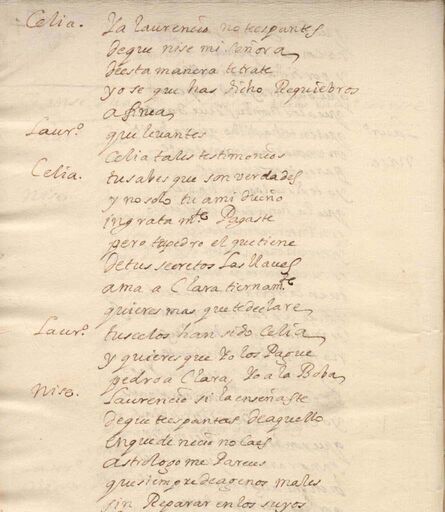 Celia. Ya laurencio no teespantes
deque nise mi señora
deesta manera tetrate
yo se que has dicho Requiebros
a finea,
Laurº. que leuantes
Celia tales testimonios
Celia. tu sabes que son verdades
y no solo tu a mi dueño
ingrata mte Pagaste
pero tu pedro el que tiene
de tus secretos Las llaues
ama a Clara tiernamte
quieres mas que te declare,
Laurº. tus celos han sido Celia,
y quieres que Yo los Pague
pedro a Clara, Yo a la Boba,
Nise. Laurencio si la enseñaste
de que te espantas de aquello
En que de necio no Caes
astrologo me Pareces
que siempre de agenos males
sin Reparar en los suyos